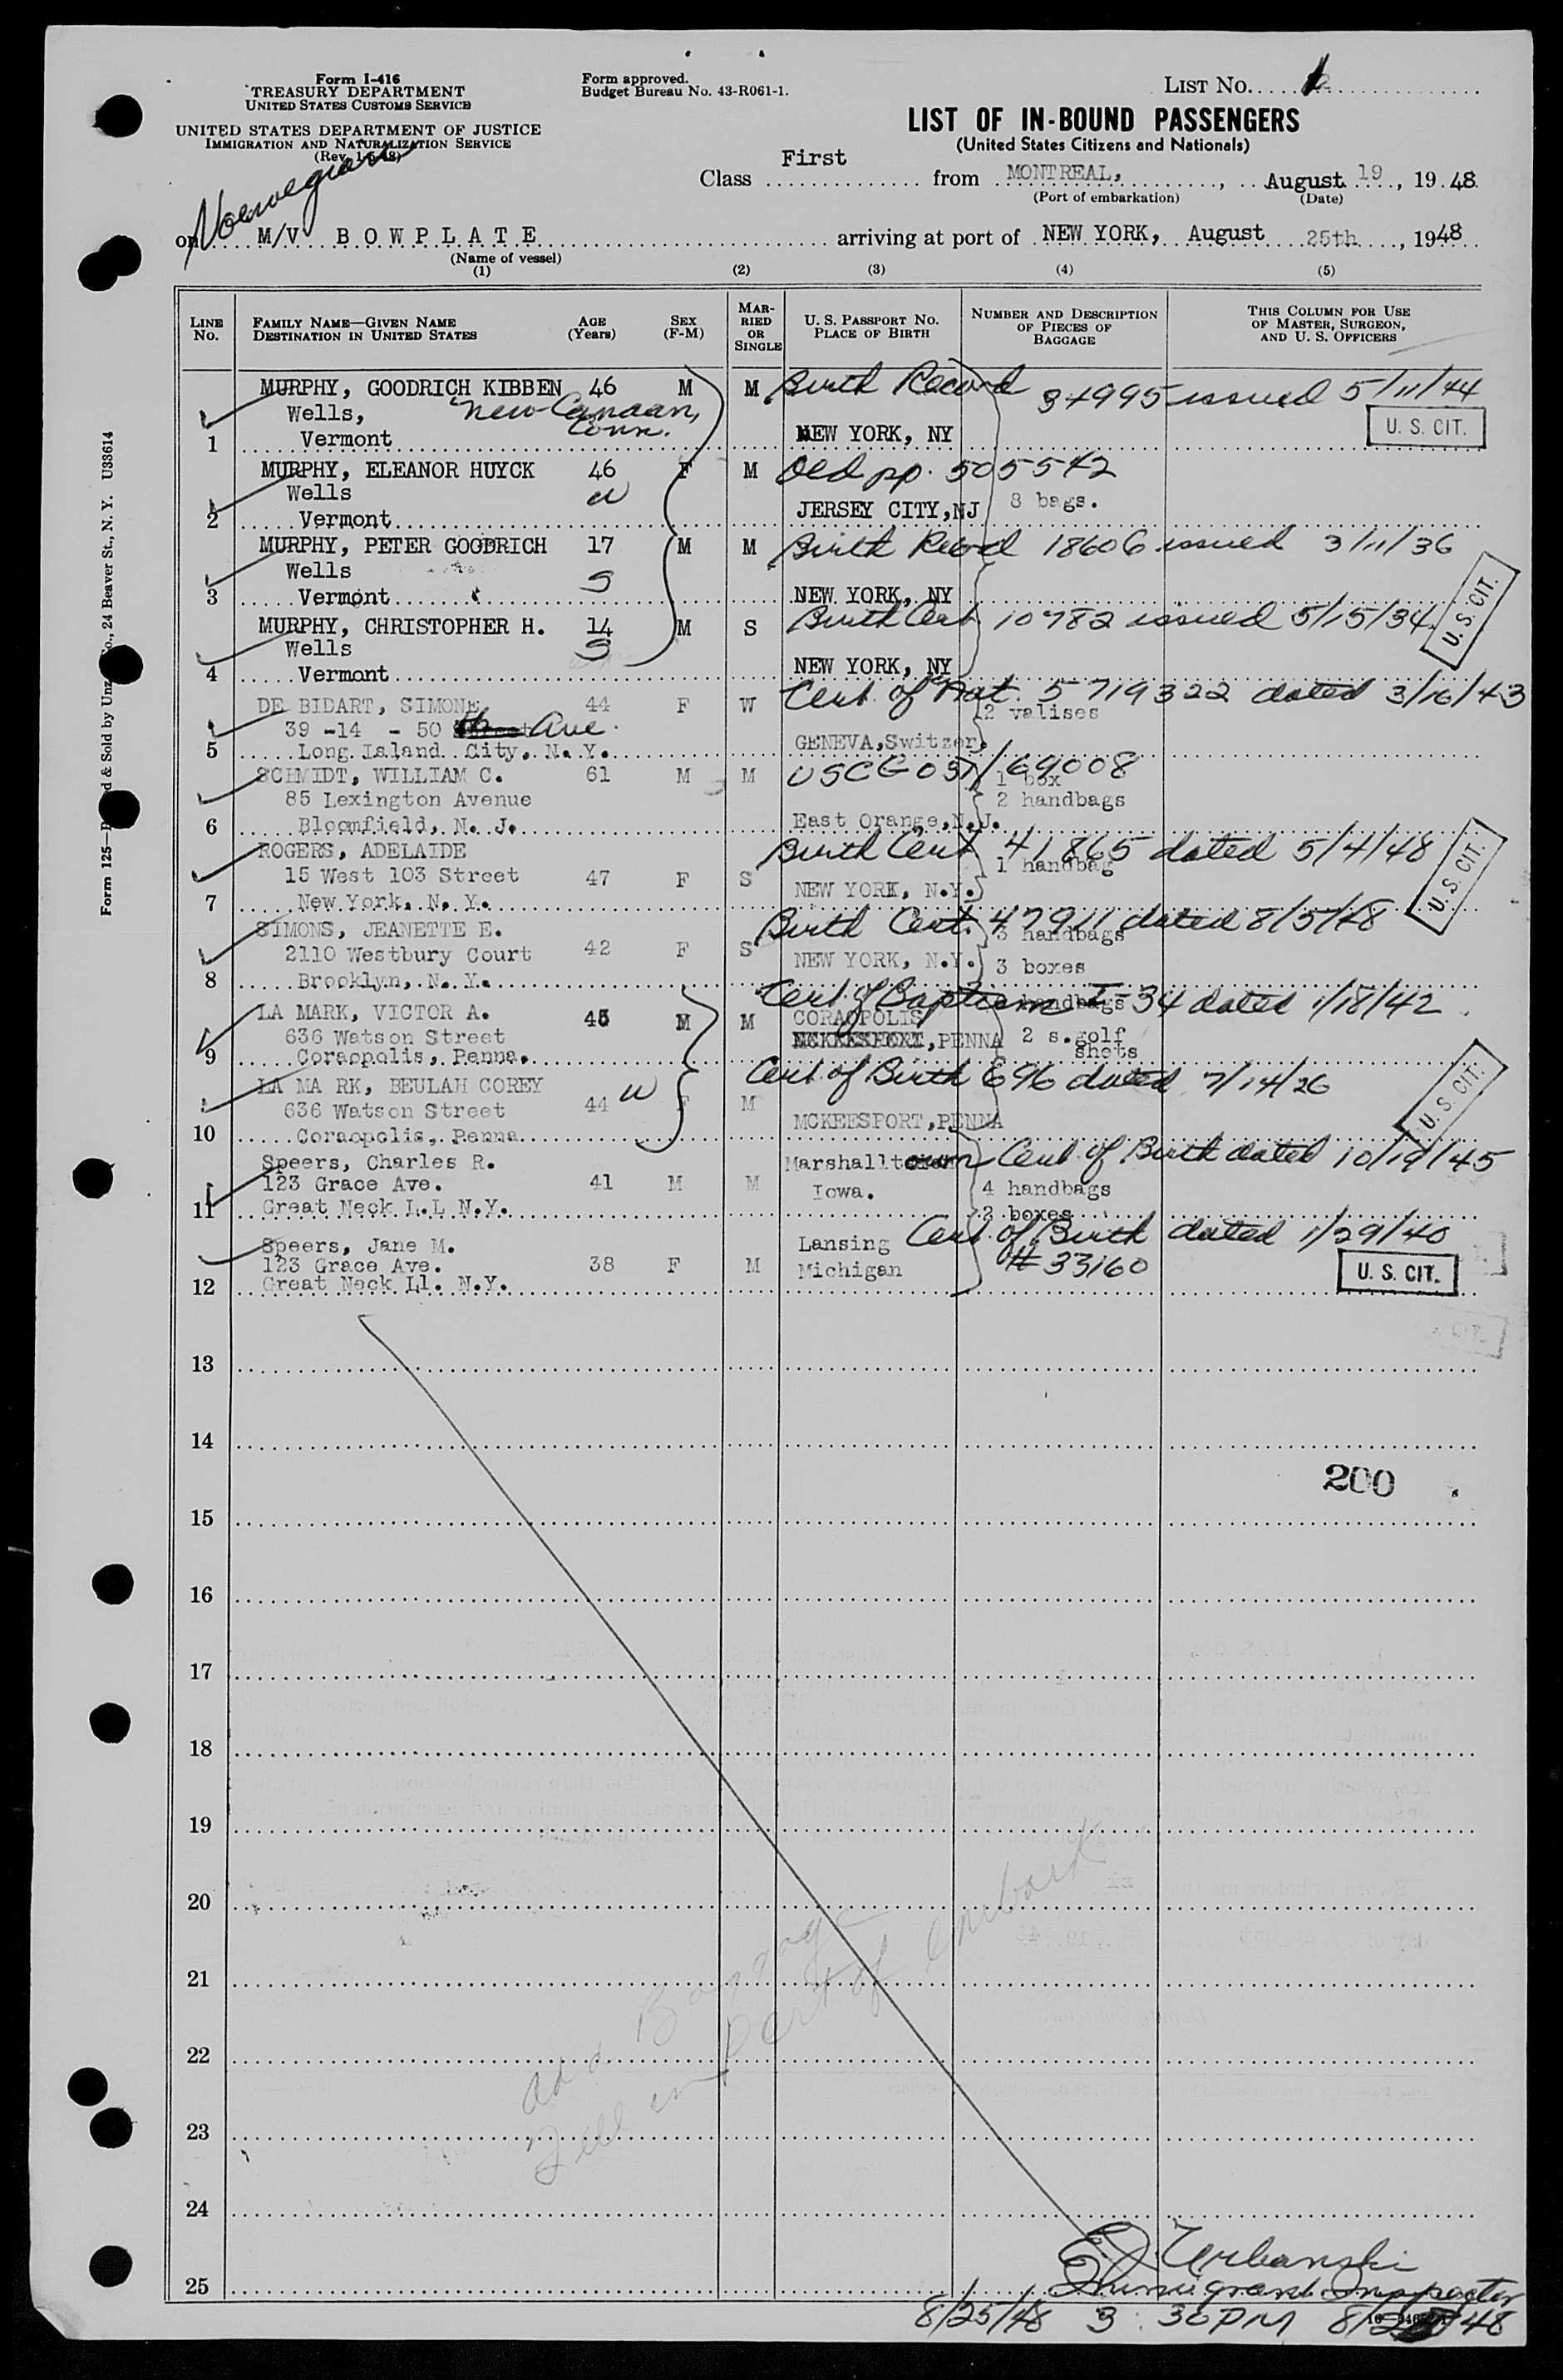 Form I-416
TREASURY DEPARTMENT
UNITED STATES CUSTOMS SERVICE
UNITED STATES DEPARTMENT OF JUSTICE
IMMIGRATION AND NATURALIZATION SERVICE
Form approved.
Budget Bureau No. 43-R061-1.
LIST No.
LIST OF IN-BOUND PASSENGERS
(United States Citizens and Nationals)
Class First from MONTREAL, August 19, 1948
(Port of embarkation) (Date)
Norwegian
on M/V BOWPLATE arriving at port of NEW YORK, August 25th, 1948
(Name of vessel)
(1) (2) (3) (4) (5)
LINE No. FAMILY NAME—GIVEN NAME DESTINATION IN UNITED STATES AGE (Years) SEX (F-M) MARRIED OR SINGLE U. S. PASSPORT NO. PLACE OF BIRTH NUMBER AND DESCRIPTION OF PIECES OF BAGGAGE THIS COLUMN FOR USE OF MASTER, SURGEON, AND U. S. OFFICERS
MURPHY, GOODRICH KIBBEN 46 M M Birth Record 34995 issued 5/11/44
Wells, New Canaan, Conn. U. S. CIT.
1 Vermont NEW YORK, NY
MURPHY, ELEANOR HUYCK 46 F M Old pp. 505542
Wells W 8 bags.
2 Vermont JERSEY CITY, NJ
MURPHY, PETER GOODRICH 17 M M Birth Record 18606 issued 3/11/36
Wells S
3 Vermont NEW YORK, NY
MURPHY, CHRISTOPHER H. 14 M S Birth Cert 10982 issued 5/15/34 U. S. CIT.
Wells S
4 Vermont NEW YORK, NY
DE BIDART, SIMONE 44 F W Cert. of Nat. 5719322 dated 3/16/43
39 -14 - 50 Ave. 2 valises
5 Long Island City, N. Y. GENEVA, Switzer.
SCHMIDT, WILLIAM C. 61 M M USCG 051/69008
1 box
85 Lexington Avenue 2 handbags
6 Bloomfield, N. J. East Orange, N.J.
ROGERS, ADELAIDE Birth Cert 41865 dated 5/4/48
15 West 103 Street 47 F S 1 handbag U. S. CIT.
7 New York, N. Y. NEW YORK, N.Y.
SIMONS, JEANETTE E. Birth Cert. 47911 dated 8/5/48
2110 Westbury Court 42 F S 3 handbags
NEW YORK, N.Y. 3 boxes
8 Brooklyn, N. Y.
Cert. of Baptism I-34 dated 1/18/42
LA MARK, VICTOR A. 45 M M CORAOPOLIS handbags
636 Watson Street MCKEESPORT, PENNA 2 s.golf
9 Coraopolis, Penna.
Cert. of Birth 696 dated 7/14/26
LA MA RK, BEULAH COREY W
636 Watson Street 44 F M MCKEESPORT, PENNA U. S. CIT.
10 Coraopolis, Penna
Speers, Charles R. Marshalltown Cert. of Birth dated 10/19/45
123 Grace Ave. 41 M M Iowa. 4 handbags
11 Great Neck L.L N.Y. 2 boxes
Cert. of Birth dated 1/29/40
Speers, Jane M. Lansing # 33160
123 Grace Ave. 38 F M Michigan U. S. CIT.
12 Great Neck Ll. N.Y.
13
14
200
15
16
17
18
19
20
21
22
23
24
25
add Baggage
Fill in port of embark
Urbanski
Immigrant Inspector
8/25/48 3:30PM
Form 125
& Sold by Unz
Co., 24 Beaver St., N. Y. U33614